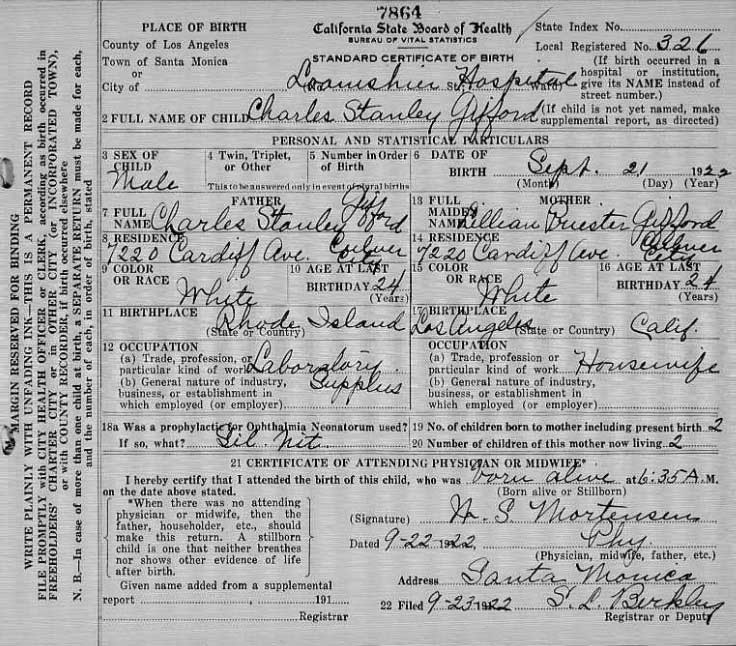 7864
PLACE OF BIRTH
California State Board of Health
State Index No.
County of Los Angeles
BUREAU OF VITAL STATISTICS
Local Registered No. 326
Town of Santa Monica
STANDARD CERTIFICATE OF BIRTH
or
City of Hospital St. Ward)
(If birth occurred in a hospital or institution, give its NAME instead of street number.)
2 FULL NAME OF CHILD Charles Stanley Gifford
(If child is not yet named, make supplemental report, as directed)
PERSONAL AND STATISTICAL PARTICULARS
3 SEX OF CHILD Male
4 Twin, Triplet, or Other
5 Number in Order of Birth
This to be answered only in event of plural births
6 DATE OF BIRTH Sept. 21 1922
(Month) (Day) (Year)
FATHER
7 FULL NAME Charles Stanley Gifford
MOTHER
13 FULL MAIDEN NAME Lillian Gifford
8 RESIDENCE 7220 Cardiff Ave. Culver City
14 RESIDENCE 7220 Cardiff Ave. Culver City
9 COLOR OR RACE White
10 AGE AT LAST BIRTHDAY 24 (Years)
15 COLOR OR RACE White
16 AGE AT LAST BIRTHDAY 24 (Years)
11 BIRTHPLACE Rhode Island
(State or Country)
17 BIRTHPLACE Los Angeles Calif.
(State or Country)
12 OCCUPATION
(a) Trade, profession, or particular kind of work Laboratory
(b) General nature of industry, business, or establishment in which employed (or employer) Supplies
OCCUPATION
(a) Trade, profession or particular kind of work Housewife
(b) General nature of industry, business, or establishment in which employed (or employer)
18a Was a prophylactic for Ophthalmia Neonatorum used?
If so, what? Sil. Nit.
19 No. of children born to mother including present birth 2
20 Number of children of this mother now living 2
21 CERTIFICATE OF ATTENDING PHYSICIAN OR MIDWIFE*
I hereby certify that I attended the birth of this child, who was born alive at 6:35 A.M.
on the date above stated.
(Born alive or Stillborn)
*When there was no attending
physician or midwife, then the
father, householder, etc., should
make this return. A stillborn
child is one that neither breathes
nor shows other evidence of life
after birth.
(Signature) S. Mortensen
Dated 9-22-1922, Phy.
(Physician, midwife, father, etc.)
Address Santa Monica
Given name added from a supplemental
report 191
Registrar
22 Filed 9-23-1922 Berkley
Registrar or Deputy
MARGIN RESERVED FOR BINDING
WRITE PLAINLY WITH UNFADING INK—THIS IS A PERMANENT RECORD
FILE PROMPTLY with CITY HEALTH OFFICER or CLERK, according as birth occurred in
FREEHOLDERS' CHARTER CITY or in OTHER CITY (or INCORPORATED TOWN),
or with COUNTY RECORDER, if birth occurred elsewhere
N. B.—In case of more than one child at birth, a SEPARATE RETURN must be made for each,
and the number of each, in order of birth, stated